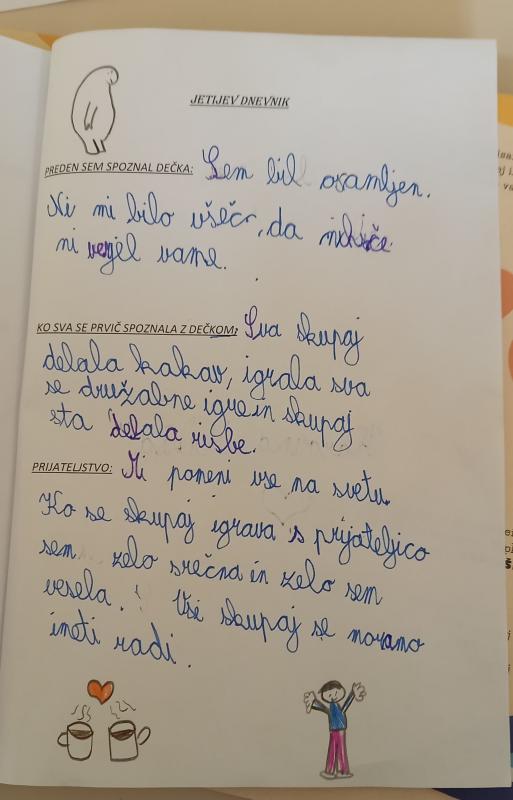 JETIJEV DNEVNIK
PREDEN SEM SPOZNAL DEČKA: Sem bil osamljen.
Ni mi bilo všeč, da nihče
ni verjel vame.
KO SVA SE PRVIČ SPOZNALA Z DEČKOM: Sva skupaj
delala kakav, igrala sva
se družabne igre in skupaj
sta delala risbe.
PRIJATELJSTVO: Mi pomeni vse na svetu.
Ko se skupaj igrava s prijateljico
sem zelo srečna in zelo sem
vesela. Vsi skupaj se moramo
imeti radi.